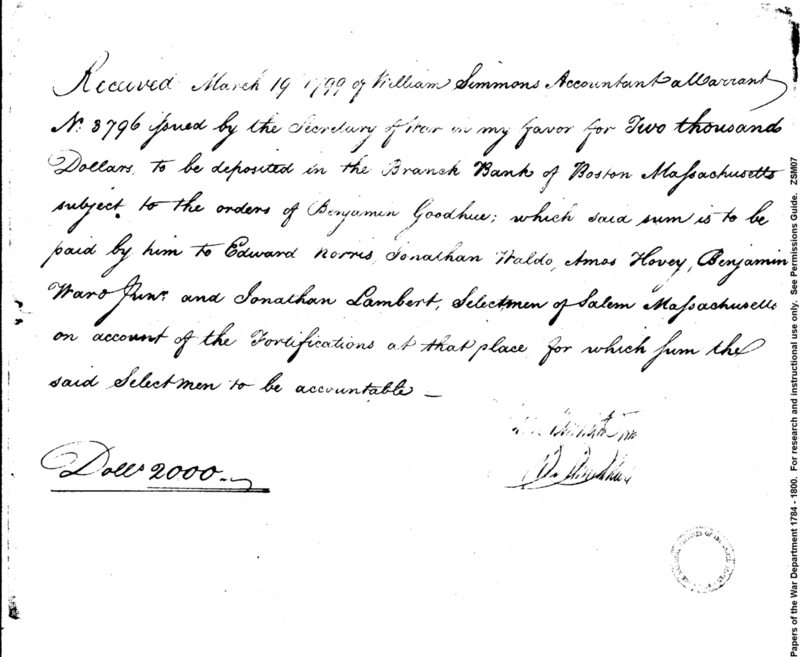 Received March 19 1799 of William Simmons Accountant a Warrant
No. 3796 issued by the Secretary of War in my favor for Two thousand
Dollars, to be deposited in the Branch Bank of Boston Massachusetts
subject to the orders of Benjamin Goodhue; which said sum is to be
paid by him to Edward Norris, Jonathan Waldo, Amos Hovey, Benjamin
Ward Junr. and Jonathan Lambert, Selectmen of Salem Massachusetts
on account of the Fortifications at that place for which sum the
said Selectmen to be accountable —
Dolls 2000.
Papers of the War Department 1784 - 1800. For research and instructional use only. See Permissions Guide. ZSM07